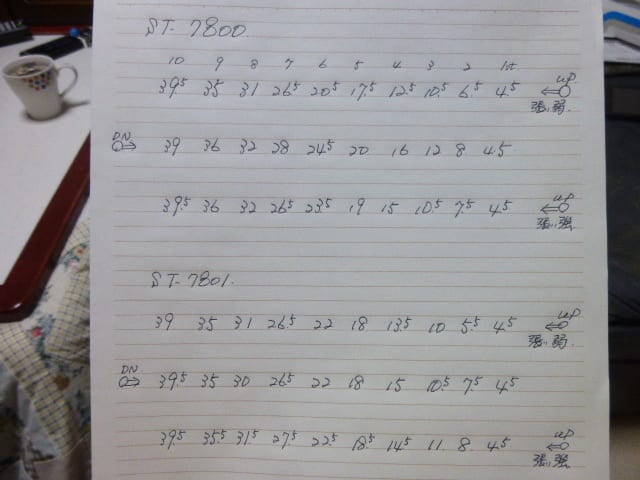 ST-7800
10 9 8 7 6 5 4 3 2 1st
39.5 35 31 26.5 20.5 17.5 12.5 10.5 6.5 4.5 ⇐○ UP
張り弱
DN ○⇒ 39 36 32 28 24.5 20 16 12 8 4.5
39.5 36 32 26.5 23.5 19 15 10.5 7.5 4.5 ⇐○ UP
張り強
ST-7801.
39 35 31 26.5 22 18 13.5 10 5.5 4.5 ⇐○ UP
張り弱
DN ○⇒ 39.5 35 30 26.5 22 18 15 10.5 7.5 4.5
39.5 35.5 31.5 27.5 22.5 18.5 14.5 11. 8. 4.5 ⇐○ UP
張り強